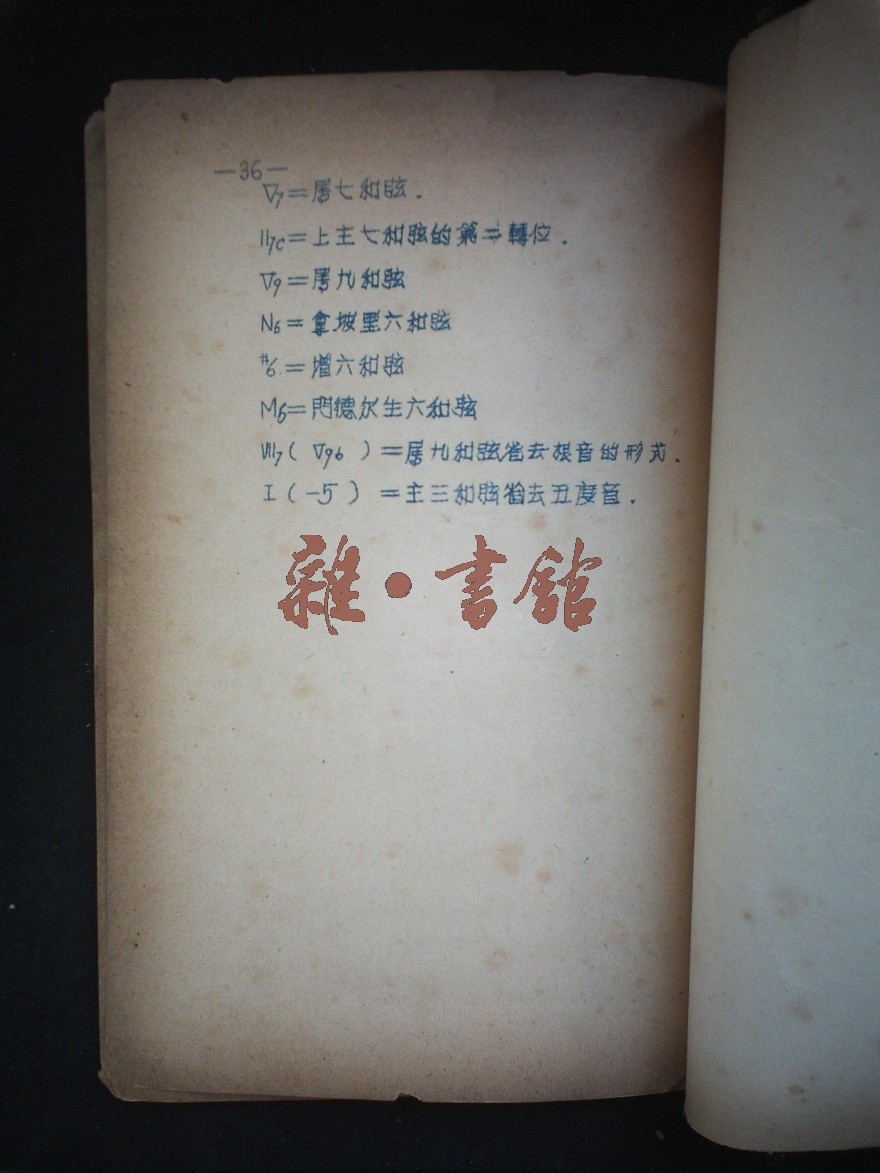 —36—
V7=属七和弦.
II7c=上主七和弦的第二轉位.
V9=属九和弦
N6=拿坡里六和弦
#6=增六和弦
M6=門德尔生六和弦
VII7(V9b)=属九和弦省去根音的形式.
I(-5)=主三和弦省去五度音.
雜·書館